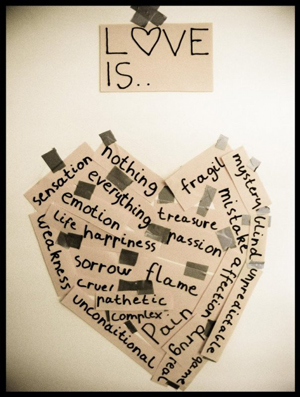 L♡VE
IS..
sensation
nothing
everything
emotion
treasure
fragil
mystery
blind
life
happiness
passion
mistake
weakness
sorrow
flame
affection
unpredictable
cruel
pathetic
complex
unconditional
Pain
drug
real
game